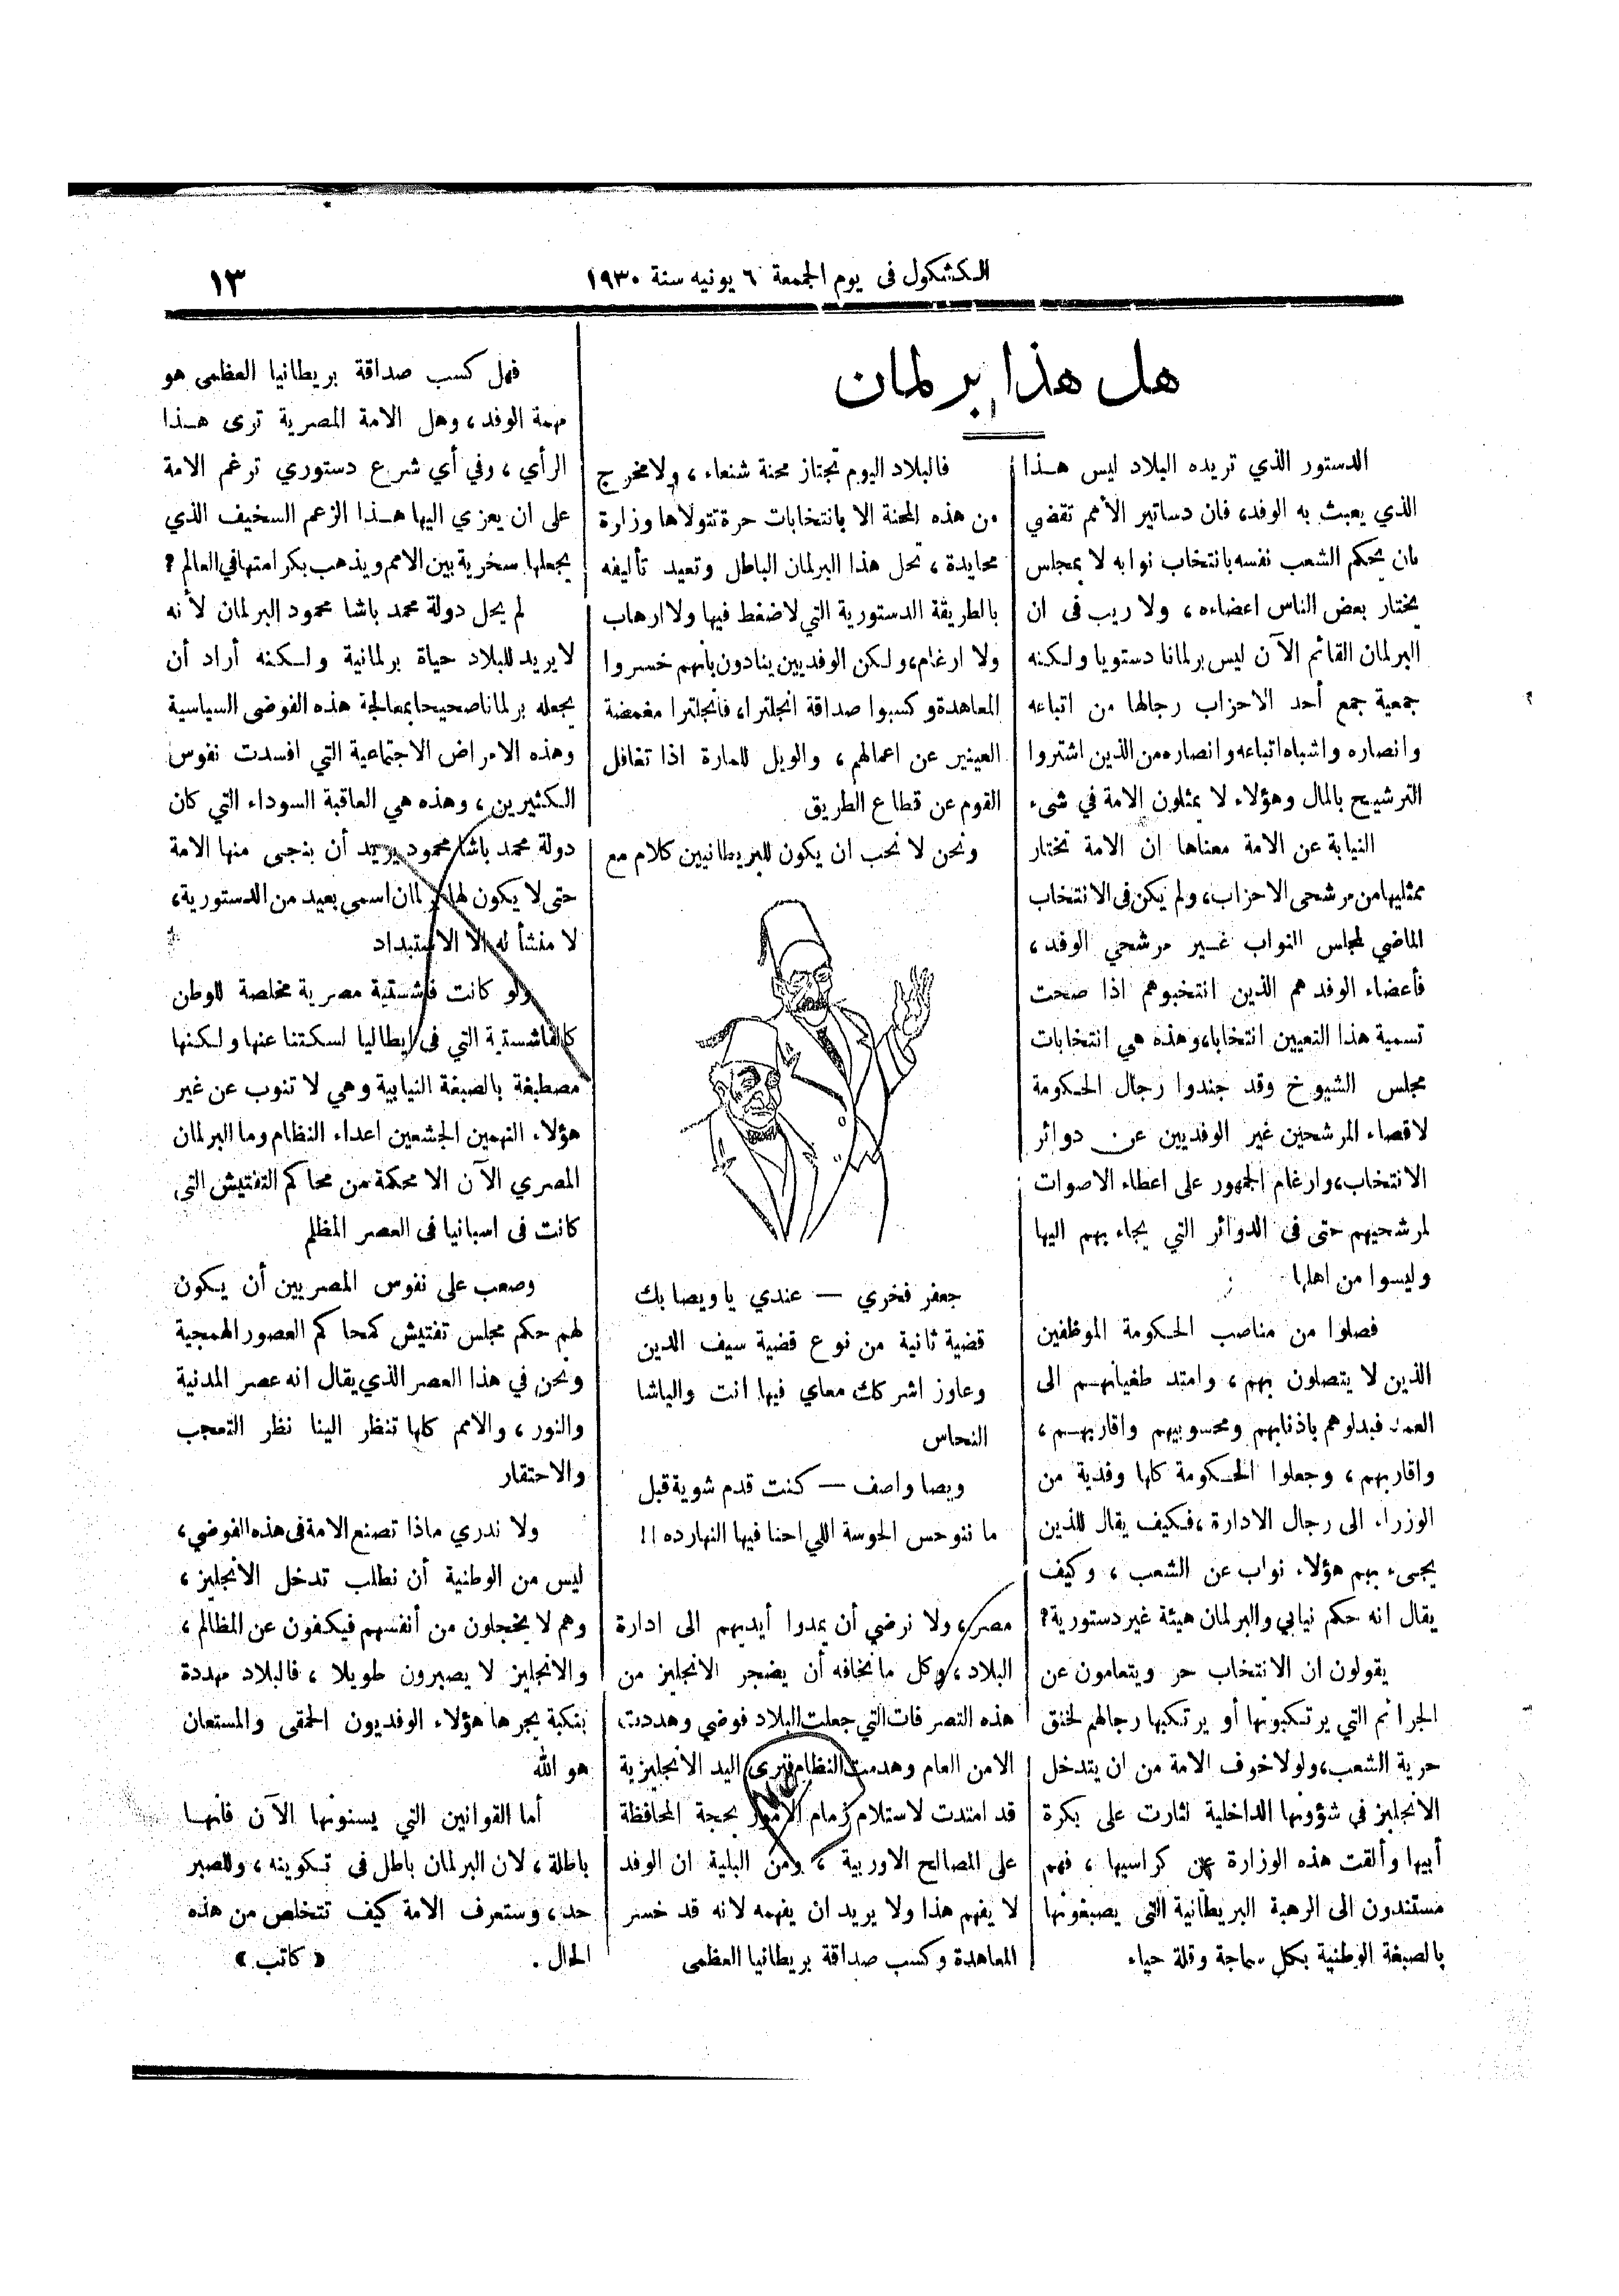 الكشكول فى يوم الجمعة ٦ يونيه سنة ١٩٣٠
١٣
هل هذا برلمان
الدستور الذي تريده البلاد ليس هذا
الذي يعبث به الوفد، فان دساتير الأمم تقضي
بان يحكم الشعب نفسه بانتخاب نوابه لا بمجلس
يختار بعض الناس اعضاءه، ولا ريب فى ان
البرلمان القائم الآن ليس برلمانا دستويا ولكنه
جمعية جمع أحد الاحزاب رجالها من اتباعه
وانصاره واشباه اتباعه وانصاره من الذين اشتروا
الترشيح بالمال وهؤلاء لا يمثلون الامة في شىء
النيابة عن الامة معناها ان الامة تختار
ممثليها من مرشحى الاحزاب، ولم يكن فى الانتخاب
الماضي لمجلس النواب غير مرشحي الوفد،
فأعضاء الوفد هم الذين انتخبوهم اذا صحت
تسمية هذا التعيين انتخابا، وهذه هي انتخابات
مجلس الشيوخ وقد جندوا رجال الحكومة
لاقصاء المرشحين غير الوفديين عن دوائر
الانتخاب، وارغام الجمهور على اعطاء الاصوات
لمرشحيهم حتى فى الدوائر التي يجاء بهم اليها
وليسوا من اهلها
فصلوا من مناصب الحكومة الموظفين
الذين لا يتصلون بهم، وامتد طغيانهم الى
العمد فبدلوهم باذنابهم ومحسوبيهم واقاربهم،
واقاربهم، وجعلوا الحكومة كلها وفدية من
الوزراء الى رجال الادارة، فكيف يقال للذين
يجىء بهم هؤلاء نواب عن الشعب، وكيف
يقال انه حكم نيابي والبرلمان هيئة غير دستورية؟
يقولون ان الانتخاب حر ويتعامون عن
الجرائم التي يرتكبونها أو يرتكبها رجالهم لخنق
حرية الشعب، ولولا خوف الامة من ان يتدخل
الانجليز في شؤونها الداخلية لثارت على بكرة
أبيها وألقت هذه الوزارة عن كراسيها، فهم
مستندون الى الرهبة البريطانية التى يصبغونها
بالصبغة الوطنية بكل سماجة وقلة حياء
فالبلاد اليوم تجتاز محنة شنعاء، ولا مخرج
من هذه المحنة الا بانتخابات حرة تتولاها وزارة
محايدة، تحل هذا البرلمان الباطل وتعيد تأليفه
بالطريقة الدستورية التي لا ضغط فيها ولا ارهاب
ولا ارغام، ولكن الوفديين ينادون بأنهم خسروا
المعاهدة وكسبوا صداقة انجلترا، فانجلترا مغمضة
العينين عن اعمالهم، والويل للمارة اذا تغافل
القوم عن قطاع الطريق
ونحن لا نحب ان يكون للبريطانيين كلام مع
جعفر فخري — عندي يا ويصا بك
قضية ثانية من نوع قضية سيف الدين
وعاوز اشركك معاي فيها انت والباشا
النحاس
ويصا واصف — كنت قدم شوية قبل
ما ننوحس الحوسة اللي احنا فيها النهارده !!
مصر، ولا نرضي أن يمدوا أيديهم الى ادارة
البلاد، وكل ما نخافه أن يضجر الانجليز من
هذه التصرفات التي جعلت البلاد فوضي وهددت
الامن العام وهدمت النظام فنرى اليد الانجليزية
قد امتدت لاستلام زمام الامور بحجة المحافظة
على المصالح الاوربية، ومن البلية ان الوفد
لا يفهم هذا ولا يريد ان يفهمه لانه قد خسر
المعاهدة وكسب صداقة بريطانيا العظمى
فهل كسب صداقة بريطانيا العظمى هو
مهمة الوفد، وهل الامة المصرية ترى هذا
الرأي، وفي أي شرع دستوري ترغم الامة
على ان يعزي اليها هذا الزعم السخيف الذي
يجعلها سخرية بين الامم ويذهب بكرامتها في العالم ؟
لم يحل دولة محمد باشا محمود البرلمان لأنه
لا يريد للبلاد حياة برلمانية ولكنه أراد أن
يجعله برلمانا صحيحا بمعالجة هذه الفوضى السياسية
وهذه الامراض الاجتماعية التي افسدت نفوس
الكثيرين، وهذه هي العاقبة السوداء التي كان
دولة محمد باشا محمود يريد أن ينجى منها الامة
حتى لا يكون لها برلمان اسمى بعيد من الدستورية،
لا منشأ له الا الاستبداد
ولو كانت فاشستية مصرية مخلصة للوطن
كالفاشستية التي فى إيطاليا لسكتنا عنها ولكنها
مصطبغة بالصبغة النيابية وهي لا تنوب عن غير
هؤلاء النهمين الجشعين اعداء النظام وما البرلمان
المصري الآن الا محكمة من محاكم التفتيش التي
كانت فى اسبانيا فى العصر المظلم
وصعب على نفوس المصريين أن يكون
لهم حكم مجلس تفتيش كمحاكم العصور الهمجية
ونحن في هذا العصر الذي يقال انه عصر المدنية
والنور، والامم كلها تنظر الينا نظر التعجب
والاحتقار
ولا ندري ماذا تصنع الامة فى هذه الفوضي،
ليس من الوطنية أن نطلب تدخل الانجليز،
وهم لا يخجلون من أنفسهم فيكفون عن المظالم،
والانجليز لا يصبرون طويلا، فالبلاد مهددة
بنكبة يجرها هؤلاء الوفديون الحمقى والمستعان
هو الله
أما القوانين التي يسنونها الآن فانها
باطلة، لان البرلمان باطل فى تكوينه، وللصبر
حد، وستعرف الامة كيف تتخلص من هذه
الحال. «كاتب»